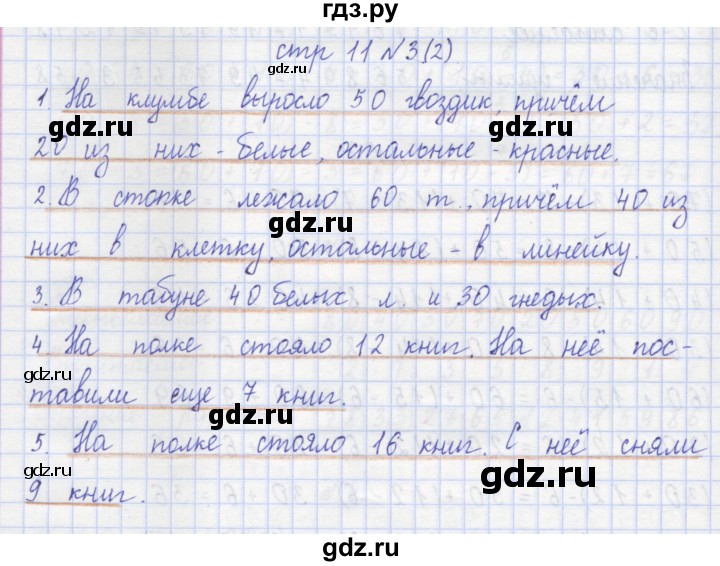 гдз.ру
стр 11 №3(2)
1. На клумбе выросло 50 гвоздик, причём
gdz.ru gdz.ru
20 из них - белые, остальные - красные.
2. В стопке лежало 60 т., причём 40 из
gdz.ru gdz.ru
них в клетку, остальные - в линейку.
3. В табуне 40 белых л. и 30 гнедых.
4. На полке стояло 12 книг. На неё пос-
gdz.ru gdz.ru
тавили еще 7 книг.
gdz.ru
5. На полке стояло 16 книг. С неё сняли
gdz.ru gdz.ru
9 книг.
gdz.ru